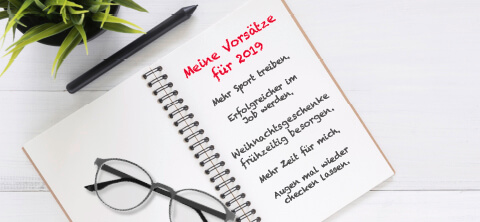 Meine Vorsätze
für 2019
Mehr Sport treiben.
Erfolgreicher im
Job werden.
Weihnachtsgeschenke
frühzeitig besorgen.
Mehr Zeit für mich.
Augen mal wieder
checken lassen.